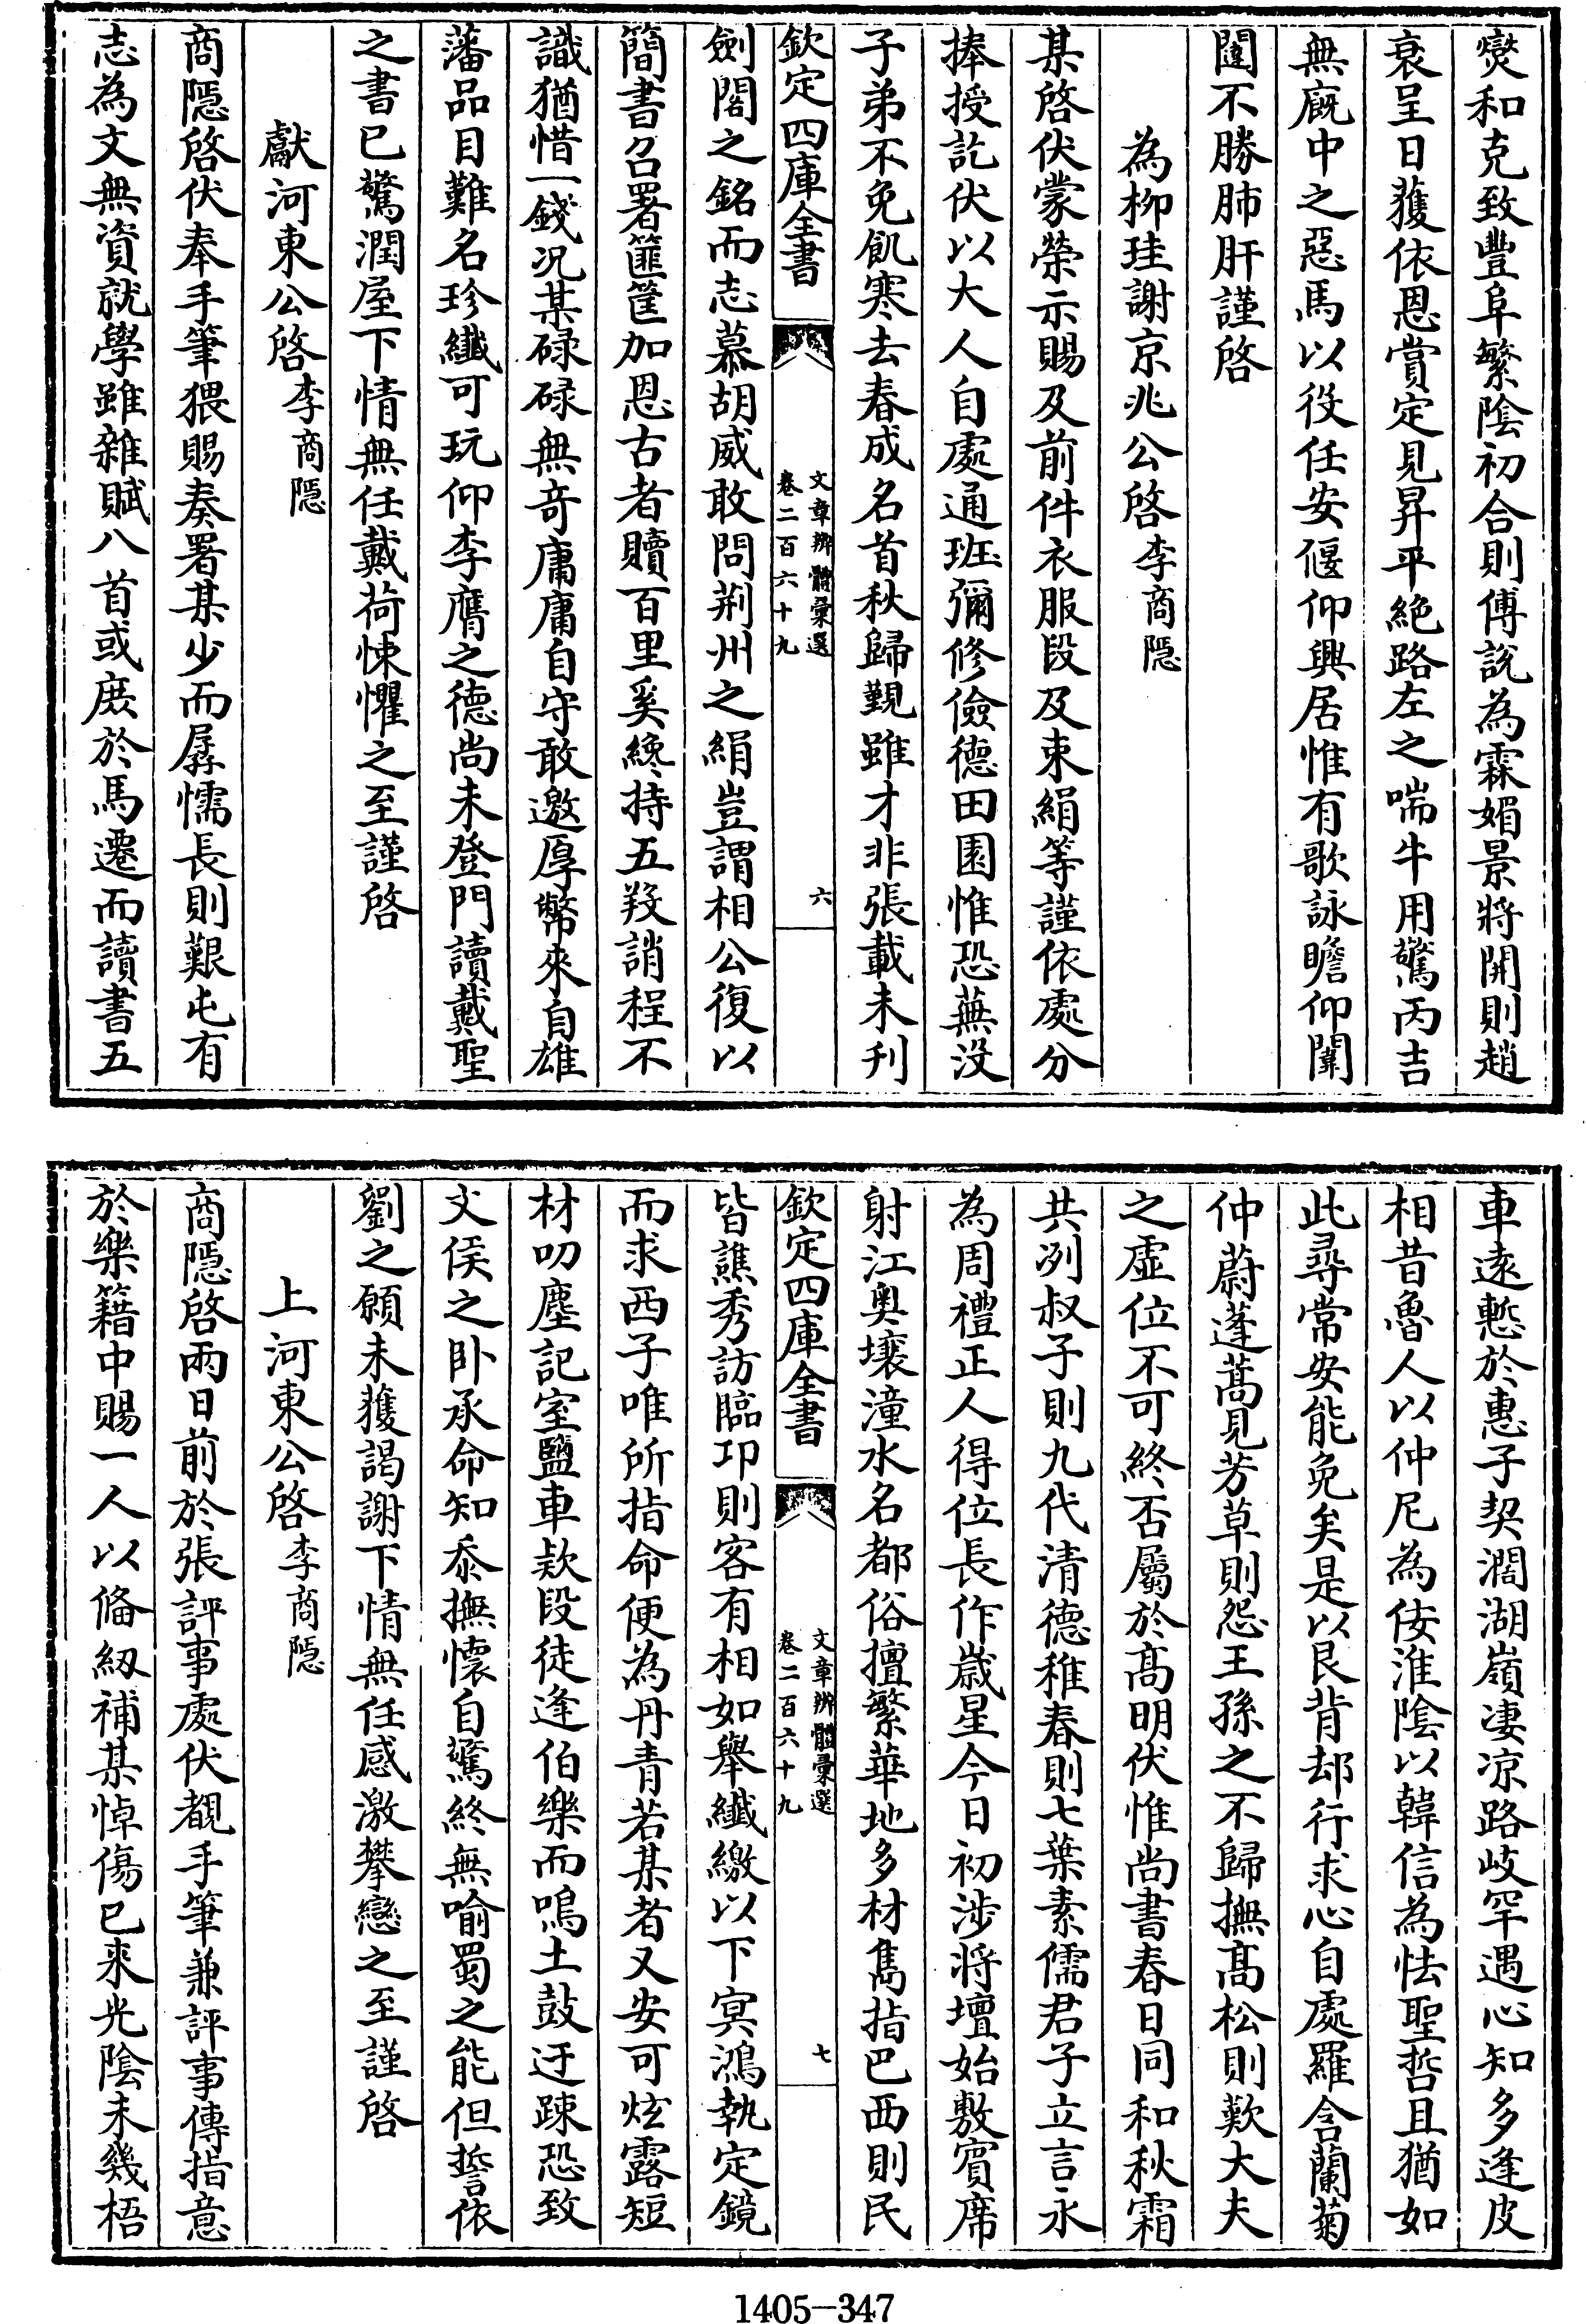 爕和克致豐阜繁陰初合則傅說為霖媚景將開則趙
衰呈日獲依恩賞定見昇平絶路左之喘牛用驚丙吉
無廐中之惡馬以役任安偃仰興居惟有歌詠瞻仰闈
闥不勝肺肝謹啓
為柳珪謝京兆公啓李商隱
某啓伏蒙榮示賜及前件衣服段及束絹等謹依處分
捧授訖伏以大人自處通班彌修儉德田園惟恐蕪没
子弟不免飢寒去春成名首秋歸覲雖才非張載未刋
欽定四庫全書
文章辨體彚選
卷二百六十九
六
劍閣之銘而志慕胡威敢問荆州之絹豈謂相公復以
簡書召署篚筐加恩古者贖百里奚纔持五羖誚程不
識猶惜一錢况某碌碌無奇庸庸自守敢邀厚幣來自雄
藩品目難名珍纖可玩仰李膺之德尚未登門讀戴聖
之書已驚潤屋下情無任戴荷悚懼之至謹啓
獻河東公啓李商隱
商隱啓伏奉手筆猥賜奏署某少而孱懦長則艱屯有
志為文無資就學雖雜賦八首或庶於馬遷而讀書五
車遠慙於惠子契濶湖嶺凄凉路岐罕遇心知多逢皮
相昔魯人以仲尼為佞淮陰以韓信為怯聖哲且猶如
此尋常安能免矣是以艮背却行求心自處羅含蘭菊
仲蔚蓬蒿見芳草則怨王孫之不歸撫髙松則歎大夫
之虛位不可終否屬於髙明伏惟尚書春日同和秋霜
共冽叔子則九代清德稚春則七葉素儒君子立言永
為周禮正人得位長作歲星今日初涉將壇始敷賓席
射江奥壤潼水名都俗擅繁華地多材雋指巴西則民
欽定四庫全書
文章辨體彚選
卷二百六十九
七
皆譙秀訪臨卭則客有相如舉纖繳以下冥鴻執定鏡
而求西子唯所指命便為丹青若某者又安可炫露短
材叨塵記室鹽車欵段徒逢伯樂而嗚土鼓迂踈恐致
文侯之卧承命知忝撫懷自驚終無喻蜀之能但誓依
劉之願未獲謁謝下情無任感激攀戀之至謹啓
上河東公啓李商隱
商隱啓兩日前於張評事處伏覩手筆兼評事傳指意
於樂籍中賜一人以偹紉補某悼傷已来光陰未幾梧
1405-347